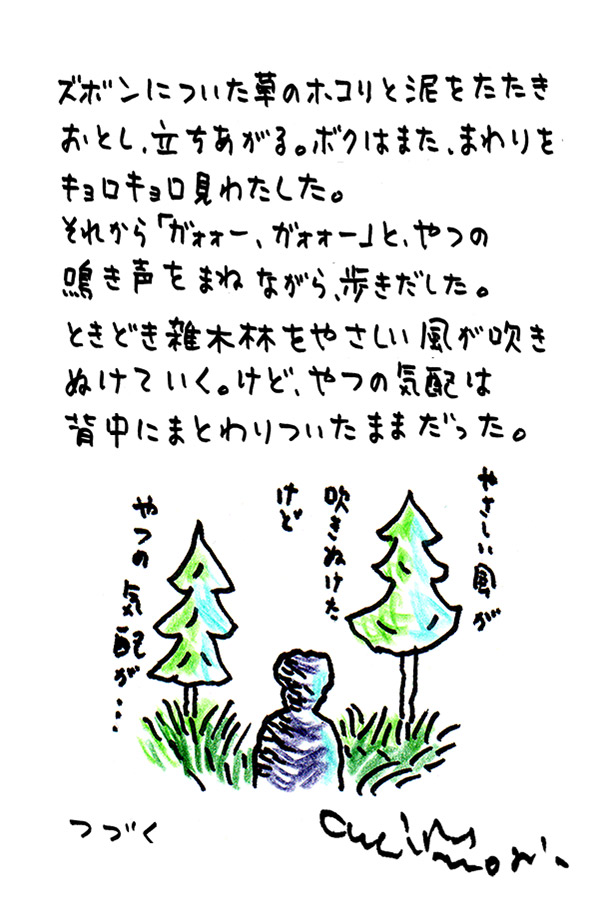 ズボンについた草のホコリと泥をたたき
おとし、立ちあがる。ボクはまた、まわりを
キョロキョロ見わたした。
それから「ガォォー、ガォォー」と、やつの
鳴き声をまねながら、歩きだした。
ときどき雑木林をやさしい風が吹き
ぬけていく。けど、やつの気配は
背中にまとわりついたままだった。
やさしい風が
吹きぬけた
けど
やつの気配が…
つづく